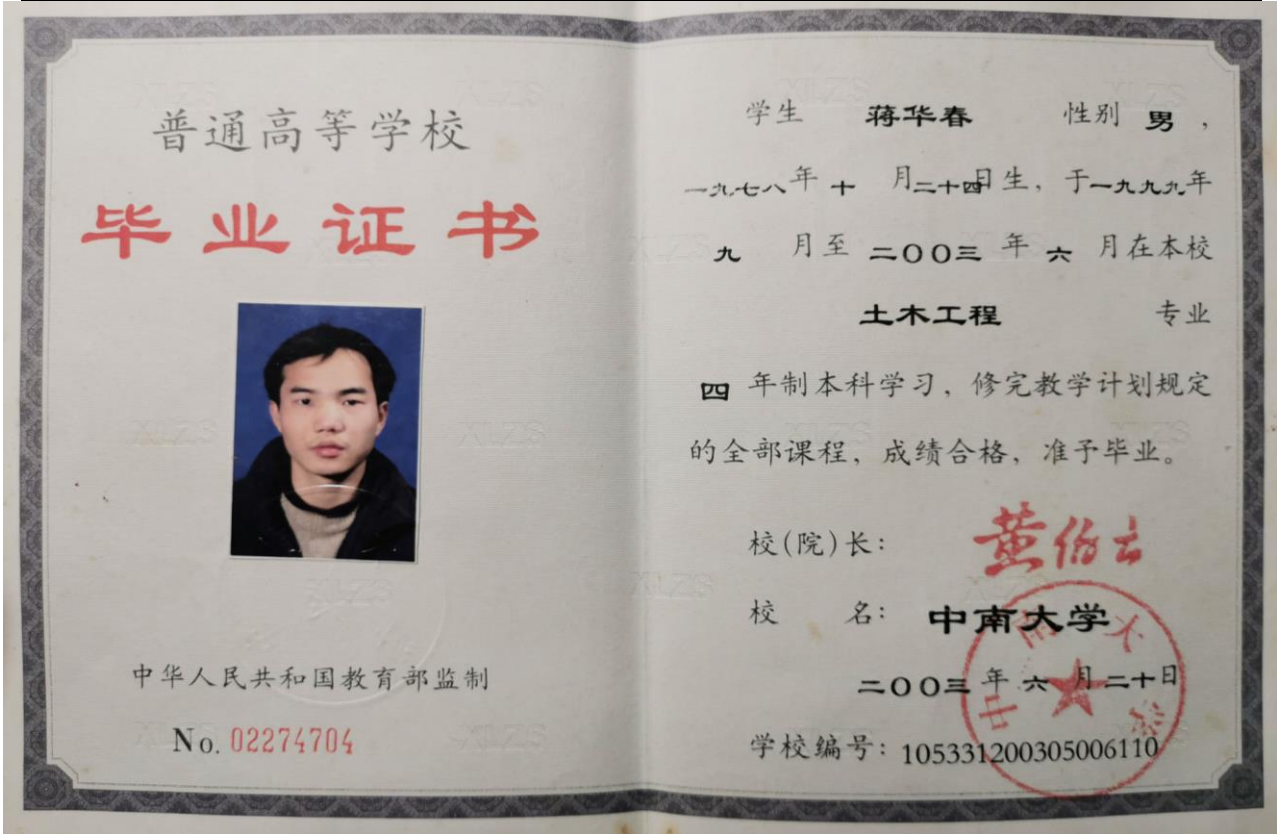 普通高等学校
毕业证书
中华人民共和国教育部监制
No. 02274704
学生 蒋华春 性别 男，
一九七八年十月二十四日生，于一九九九年
九月至二〇〇三年六月在本校
土木工程 专业
四年制本科学习，修完教学计划规定
的全部课程，成绩合格，准予毕业。
校(院)长： 黄伯云
校 名： 中南大学
二〇〇三年六月二十日
学校编号：105331200305006110
中南大学
XLZS